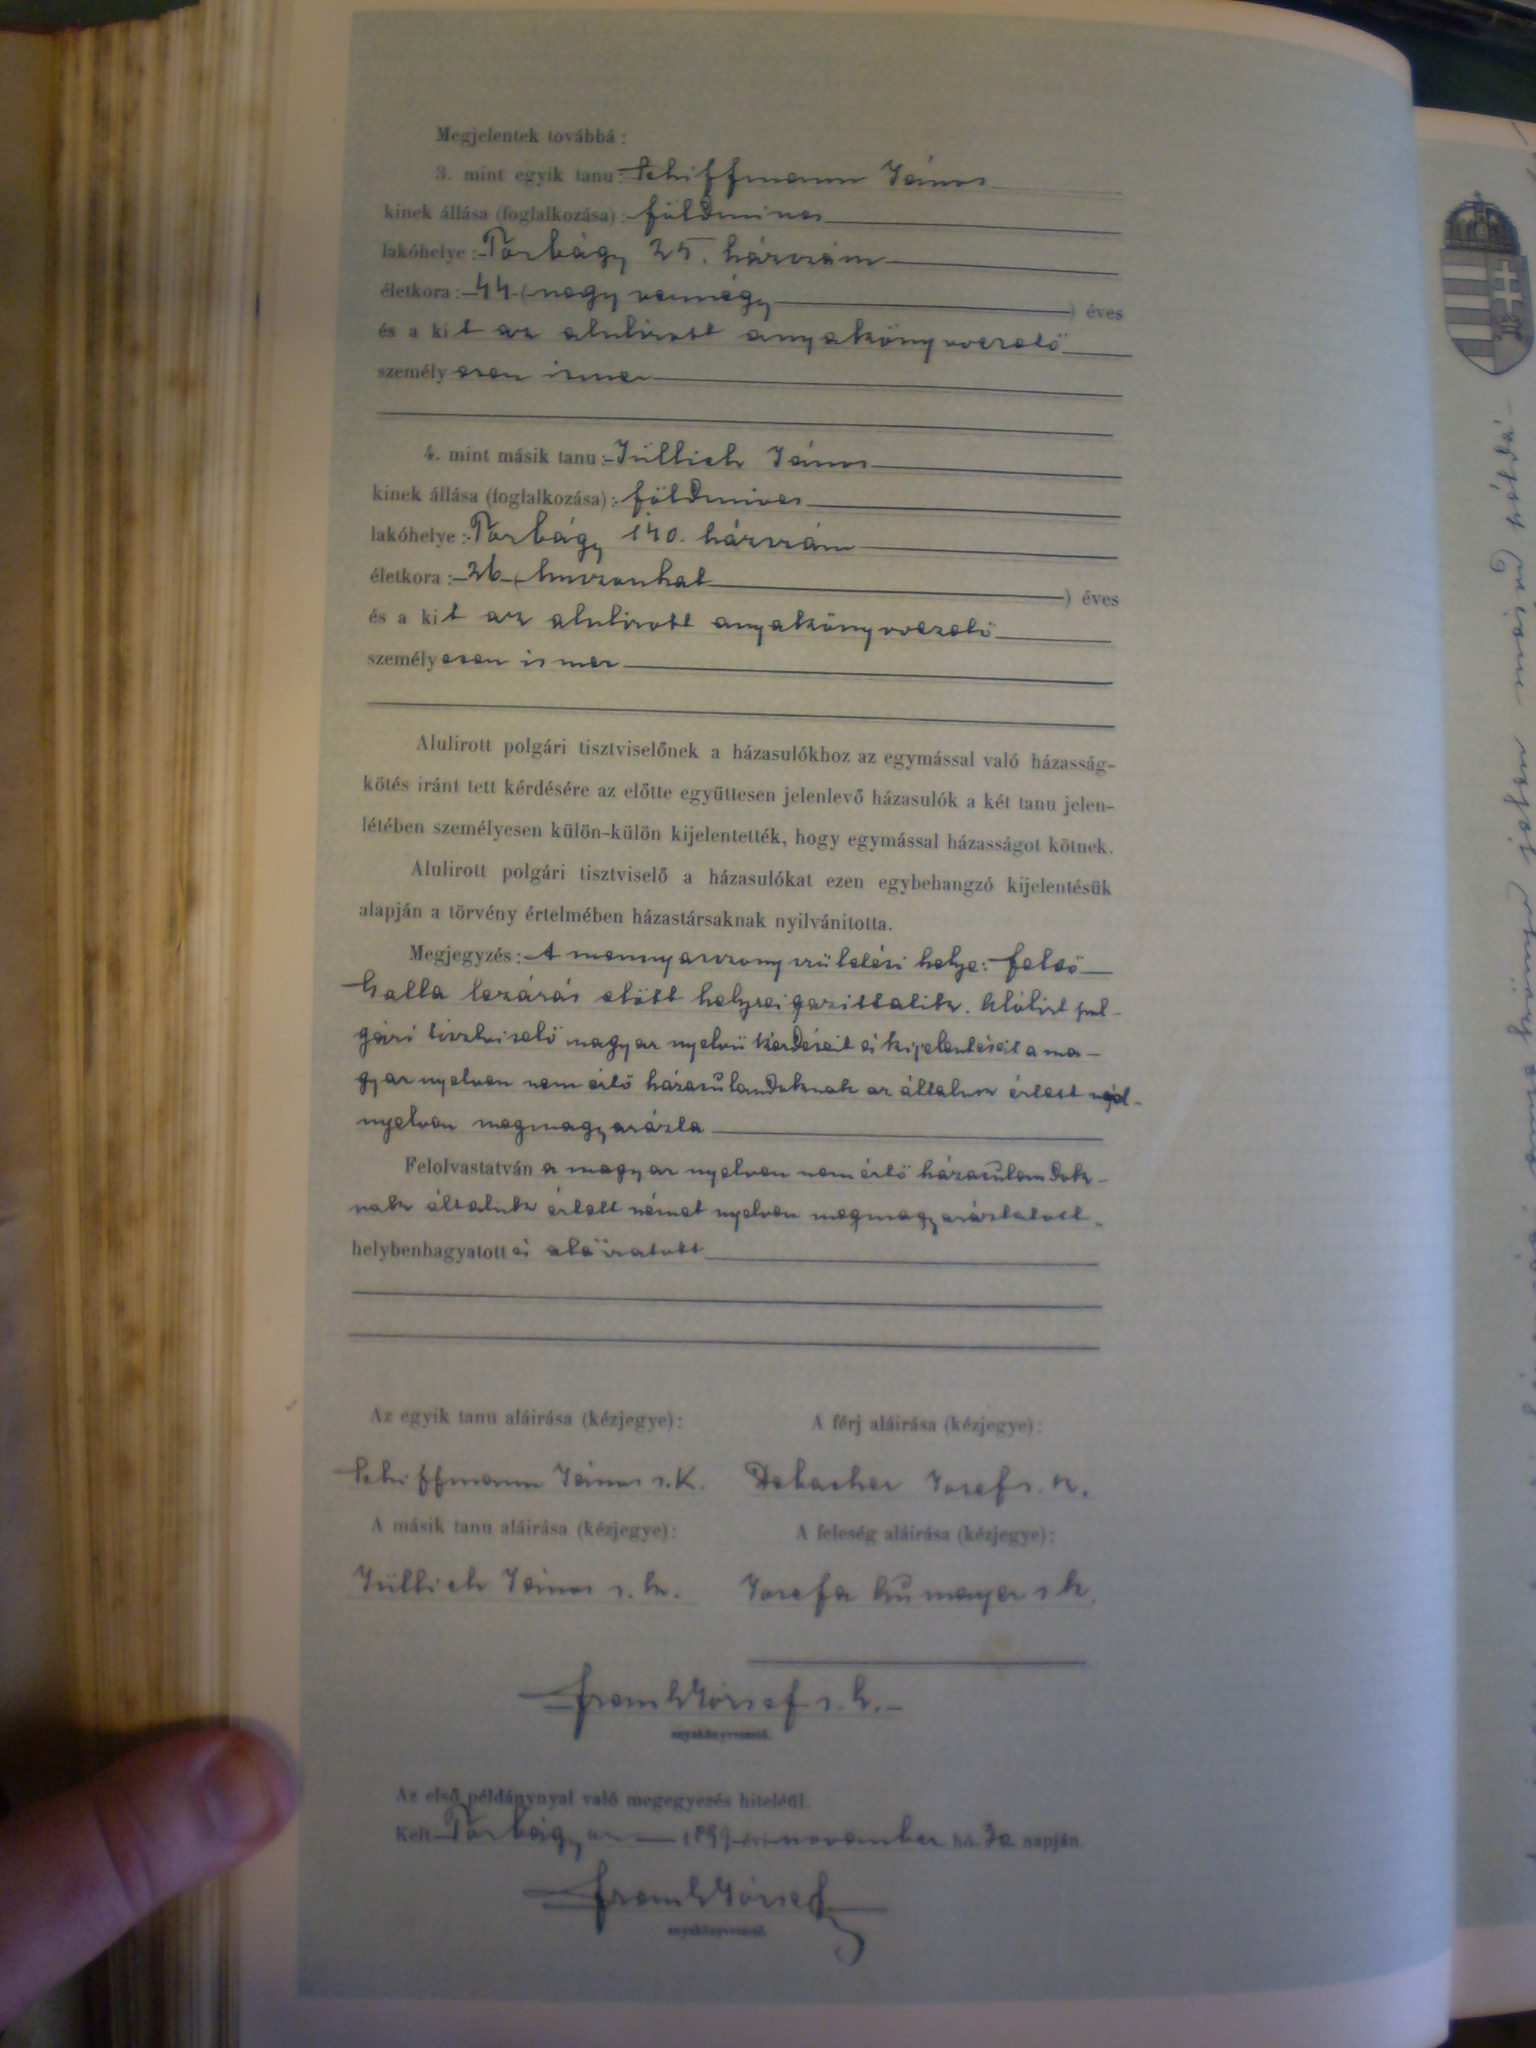 Megjelentek továbbá:
3. mint egyik tanu: Schiffmann János
kinek állása (foglalkozása): földmives
lakóhelye: Torbágy 25. házszám
életkora: 44 (negyvennégy) éves
és a kit az alulirott anyakönyvvezető
személyesen ismer
4. mint másik tanu: Jüllich János
kinek állása (foglalkozása): földmives
lakóhelye: Torbágy 140. házszám
életkora: 26 (huszonhat) éves
és a kit az alulirott anyakönyvvezető
személyesen ismer
Alulirott polgári tisztviselőnek a házasulókhoz az egymással való házasság-
kötés iránt tett kérdésére az előtte együttesen jelenlevő házasulók a két tanu jelen-
létében személyesen külön-külön kijelentették, hogy egymással házasságot kötnek.
Alulirott polgári tisztviselő a házasulókat ezen egybehangzó kijelentésük
alapján a törvény értelmében házastársaknak nyilvánitotta.
Megjegyzés: A mennyasszony születési helye: felső
Galla lezárás előtt helyreigazittatik. Alólirt pol-
gári tisztviselő magyar nyelvü kérdéseit és kijelentését a ma-
gyar nyelven nem értő házasulandóknak az általuk értett
nyelven megmagyarázta
Felolvastatván a magyar nyelven nem értő házasulandók-
nak általuk értett német nyelven megmagyaráztatott
helybenhagyatott és aláiratott
Az egyik tanu aláirása (kézjegye): A férj aláirása (kézjegye):
Schiffmann János s.k. Josef s.k.
A másik tanu aláirása (kézjegye): A feleség aláirása (kézjegye):
Jüllich János s.k. Josefa s k.
Frank József s.k.
anyakönyvvezető.
Az első példánynyal való megegyezés hiteléül.
Kelt Torbágyon 1899 évi november hó 30 napján.
Frank József
anyakönyvvezető.